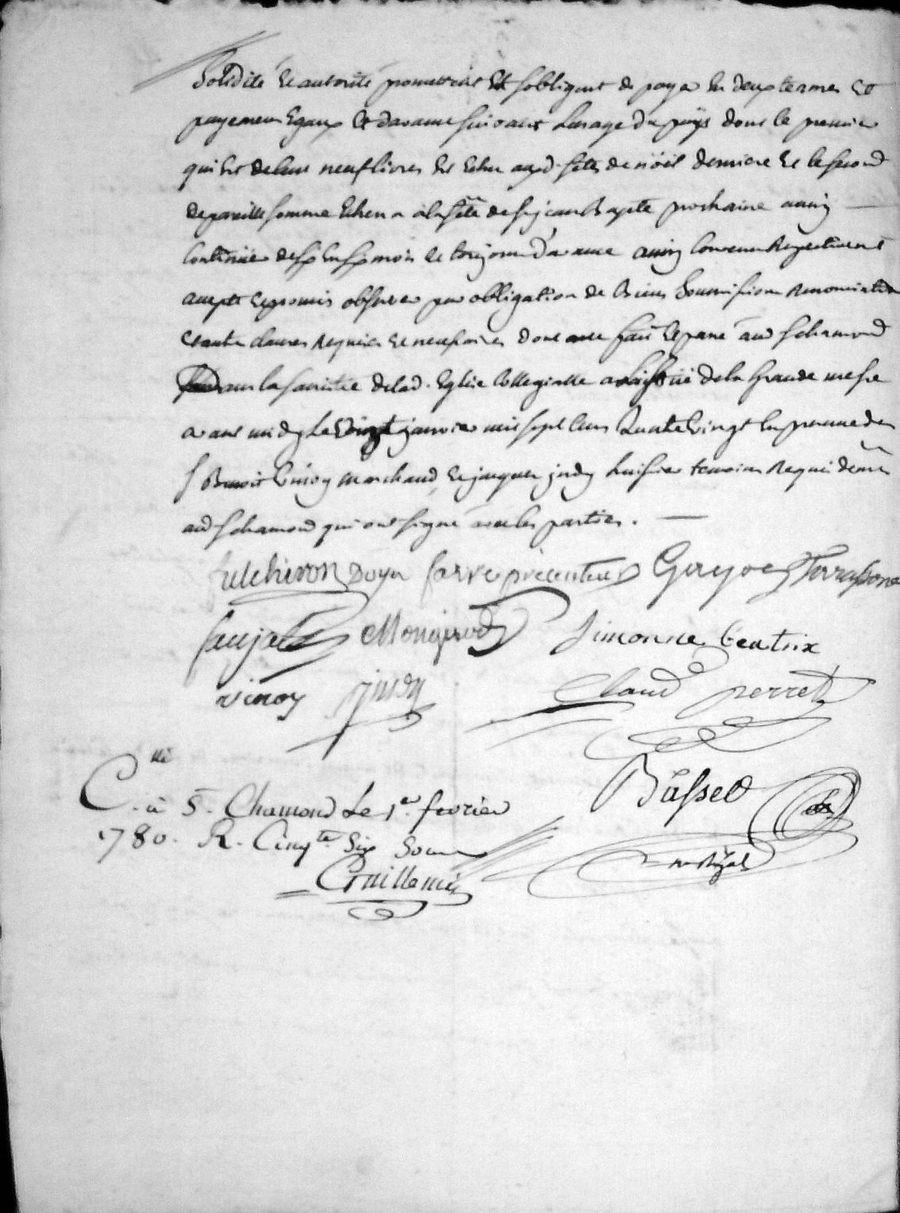 Solidité et autorité promettent et s'obligent de payer en deux termes et
payemens Egaux et d'avance suivant l'usage du pays dont le premier
qui est de leur neuf livres est Echu auxd. fêtes de noël derniere et le second
de pareille somme Echera à la fête de St jean Bapte prochaine ainsy
Continuer de six En six mois et toujours d'avance ainsy Convenu Respectivement
accepté et promis observer par obligation de Biens Soumissions Renonciations
et autres clauses Requises et necessaires dont acte fait et passé aud St chamond
dans la sacristie de lad. Eglise Collegialle a l'issüe de la Grande messe
avant midy Le vingt janvier mil sept Cens Quatre Vingt En presence de
S Benoit Vinoy Marchand et jacques judy huissier temoins Requis demts
aud St chamond qui ont signé avec les parties.
fulchiron Doyen farre précenteur Terrasson
Mongirod Simonne Beatrix
vinoy judy Claud perret
C. lé à St. Chamond Le 1er. fevrier
Basset
1780. R. Cinqte Six Sous
Guillemin
nre Royal